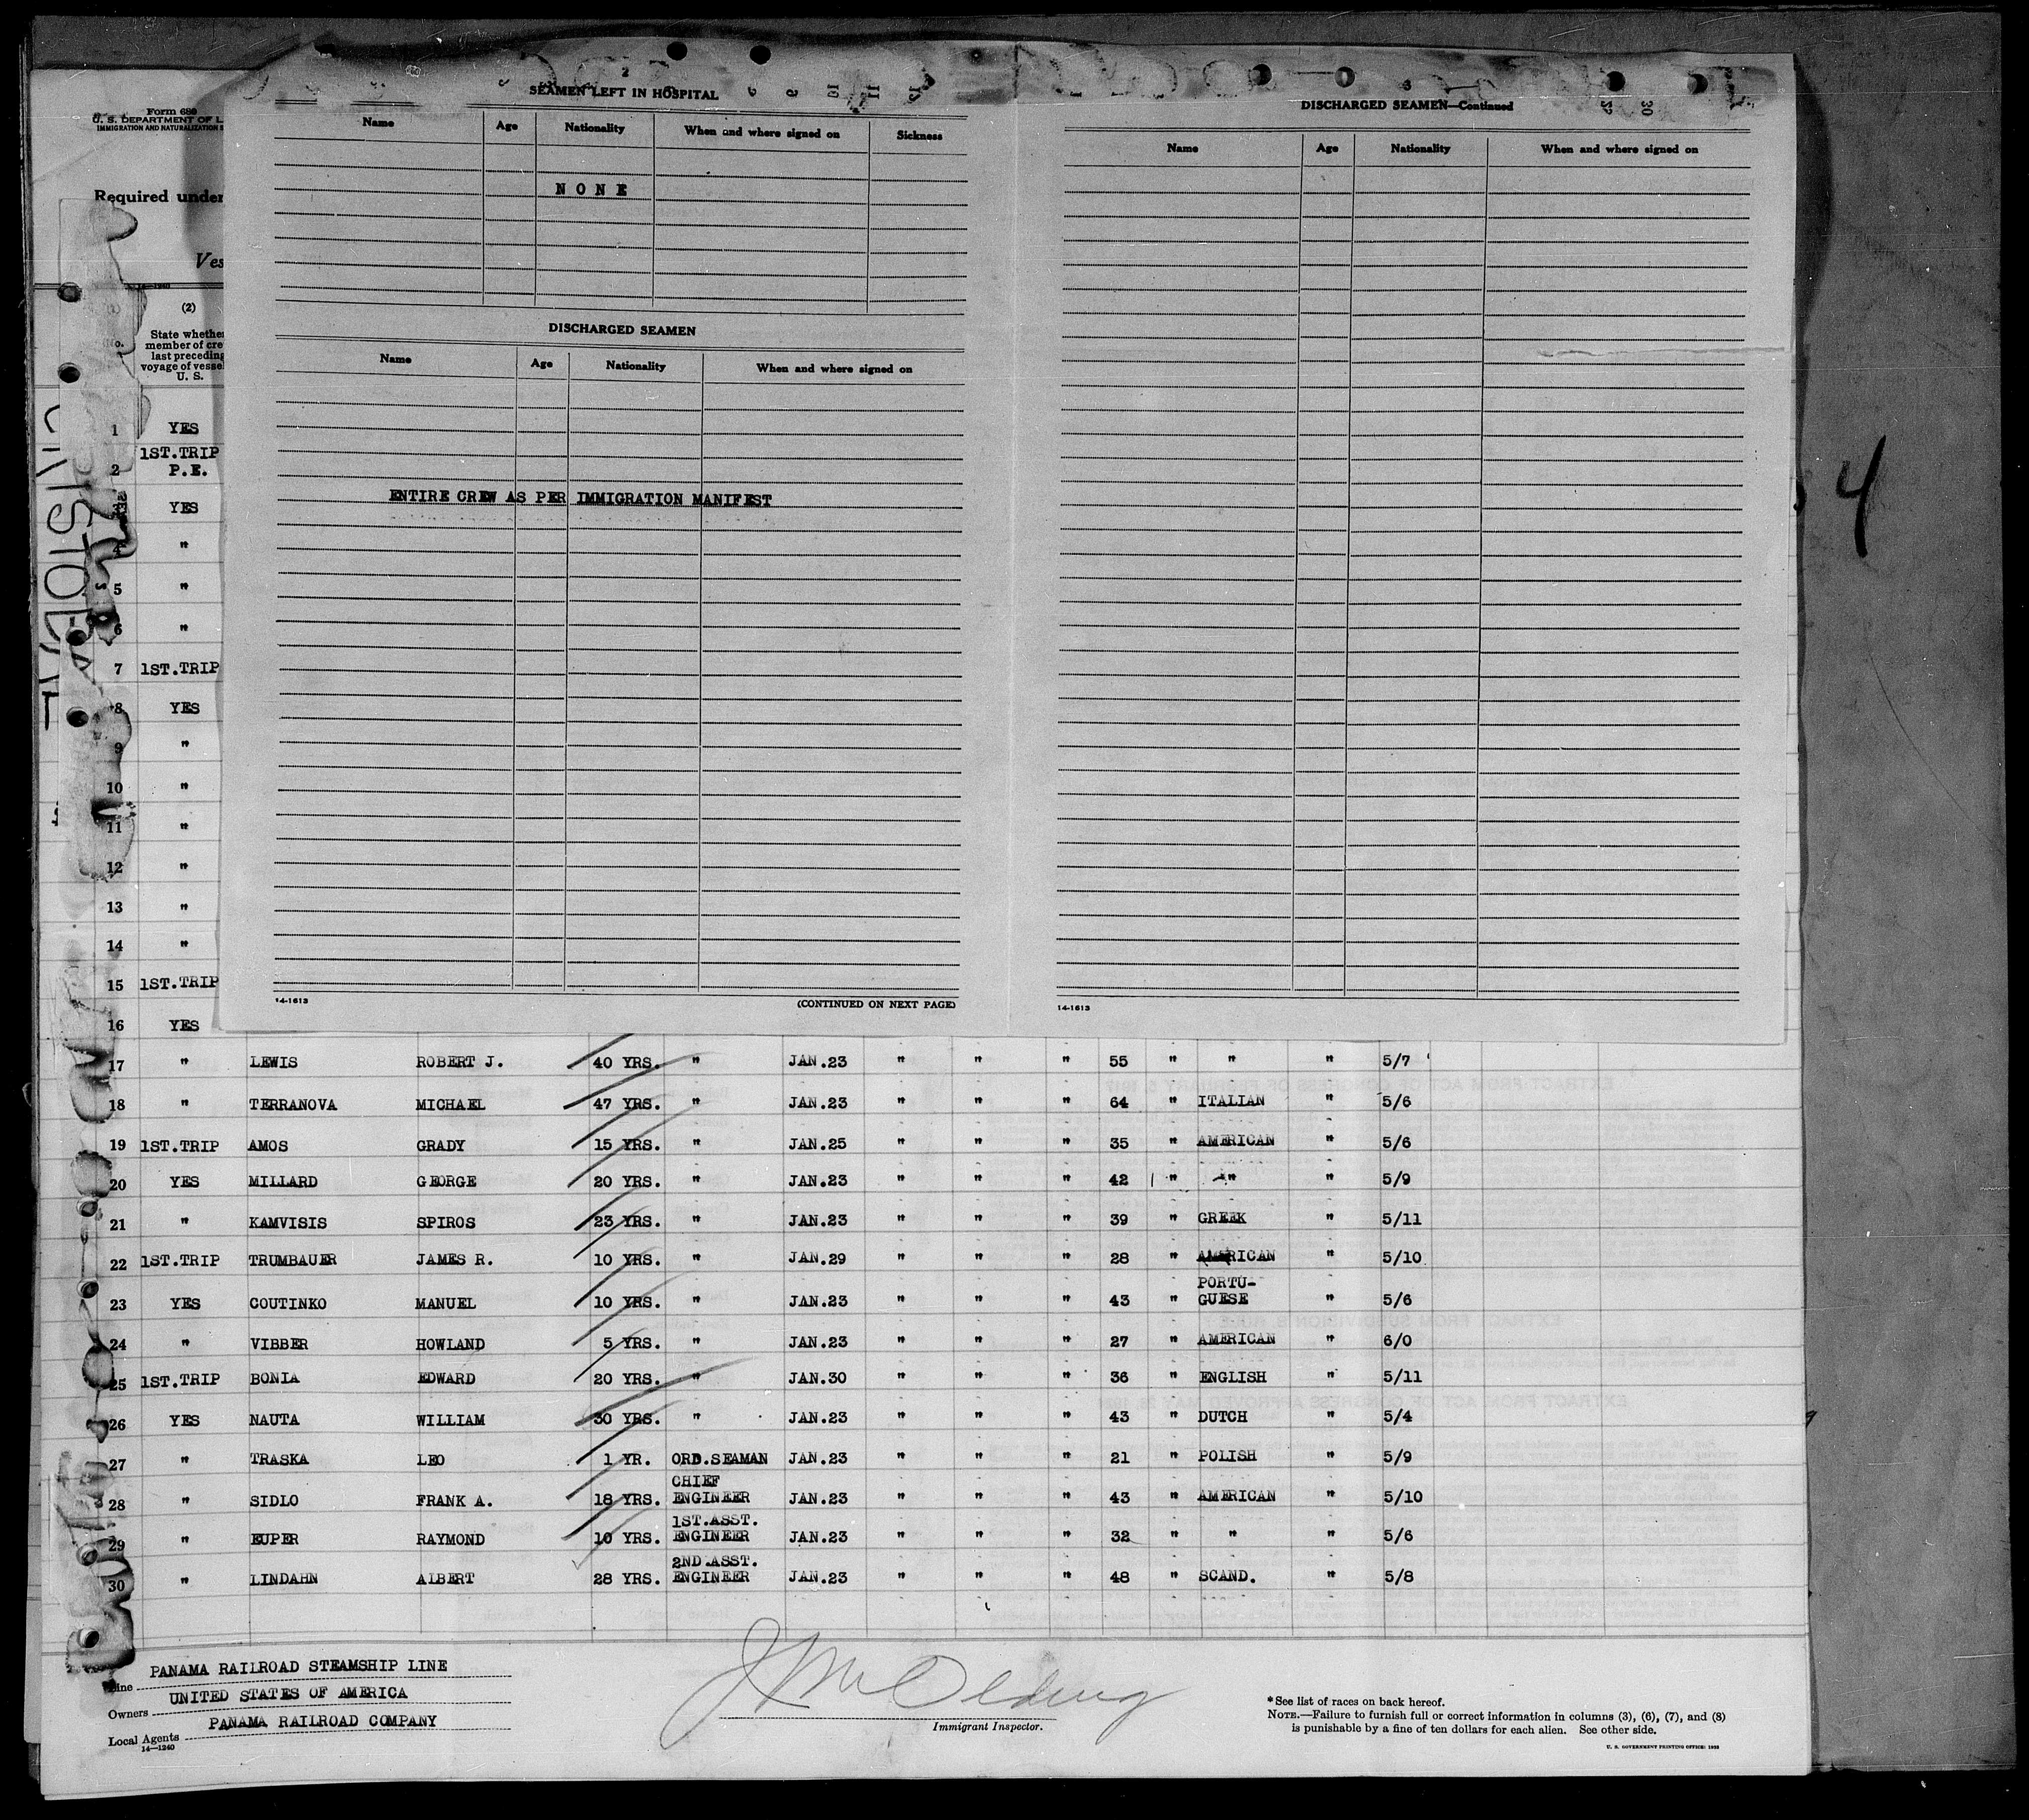 2
SEAMEN LEFT IN HOSPITAL
Name Age Nationality When and where signed on Sickness
NONE
DISCHARGED SEAMEN
Name Age Nationality When and where signed on
ENTIRE CREW AS PER IMMIGRATION MANIFEST
14-1613 (CONTINUED ON NEXT PAGE)
3
DISCHARGED SEAMEN—Continued
Name Age Nationality When and where signed on
14-1613
4
Form 680
U. S. DEPARTMENT OF L
IMMIGRATION AND NATURALIZATION S
Required under
Ves
14—1240
(2)
No.
State whether
member of cre
last preceding
voyage of vesse
U. S.
1 YES
2 1ST.TRIP P.E.
3 YES
4 "
5 "
6 "
7 1ST.TRIP
8 YES
9 "
10 "
11 "
12 "
13 "
14 "
15 1ST.TRIP
16 YES
17 " LEWIS ROBERT J. 40 YRS. " JAN.23 " " " 55 " " " 5/7
18 " TERRANOVA MICHAEL 47 YRS. " JAN.23 " " " 64 " ITALIAN " 5/6
19 1ST.TRIP AMOS GRADY 15 YRS. " JAN.25 " " " 35 " AMERICAN " 5/6
20 YES MILLARD GEORGE 20 YRS. " JAN.23 " " " 42 " " " 5/9
21 " KAMVISIS SPIROS 23 YRS. " JAN.23 " " " 39 " GREEK " 5/11
22 1ST.TRIP TRUMBAUER JAMES R. 10 YRS. " JAN.29 " " " 28 " AMERICAN " 5/10
23 YES COUTINKO MANUEL 10 YRS. " JAN.23 " " " 43 " PORTU-GUESE " 5/6
24 " VIBBER HOWLAND 5 YRS. " JAN.23 " " " 27 " AMERICAN " 6/0
25 1ST.TRIP BONIA EDWARD 20 YRS. " JAN.30 " " " 36 " ENGLISH " 5/11
26 YES NAUTA WILLIAM 30 YRS. " JAN.23 " " " 43 " DUTCH " 5/4
27 " TRASKA LEO 1 YR. ORD.SEAMAN JAN.23 " " " 21 " POLISH " 5/9
28 " SIDLO FRANK A. 18 YRS. CHIEF ENGINEER JAN.23 " " " 43 " AMERICAN " 5/10
29 " EUPER RAYMOND 10 YRS. 1ST.ASST. ENGINEER JAN.23 " " " 32 " " " 5/6
30 " LINDAHN ALBERT 28 YRS. 2ND.ASST. ENGINEER JAN.23 " " " 48 " SCAND. " 5/8
Line PANAMA RAILROAD STEAMSHIP LINE
Owners UNITED STATES OF AMERICA
Local Agents PANAMA RAILROAD COMPANY
14—1240
Immigrant Inspector.
*See list of races on back hereof.
NOTE.—Failure to furnish full or correct information in columns (3), (6), (7), and (8)
is punishable by a fine of ten dollars for each alien. See other side.